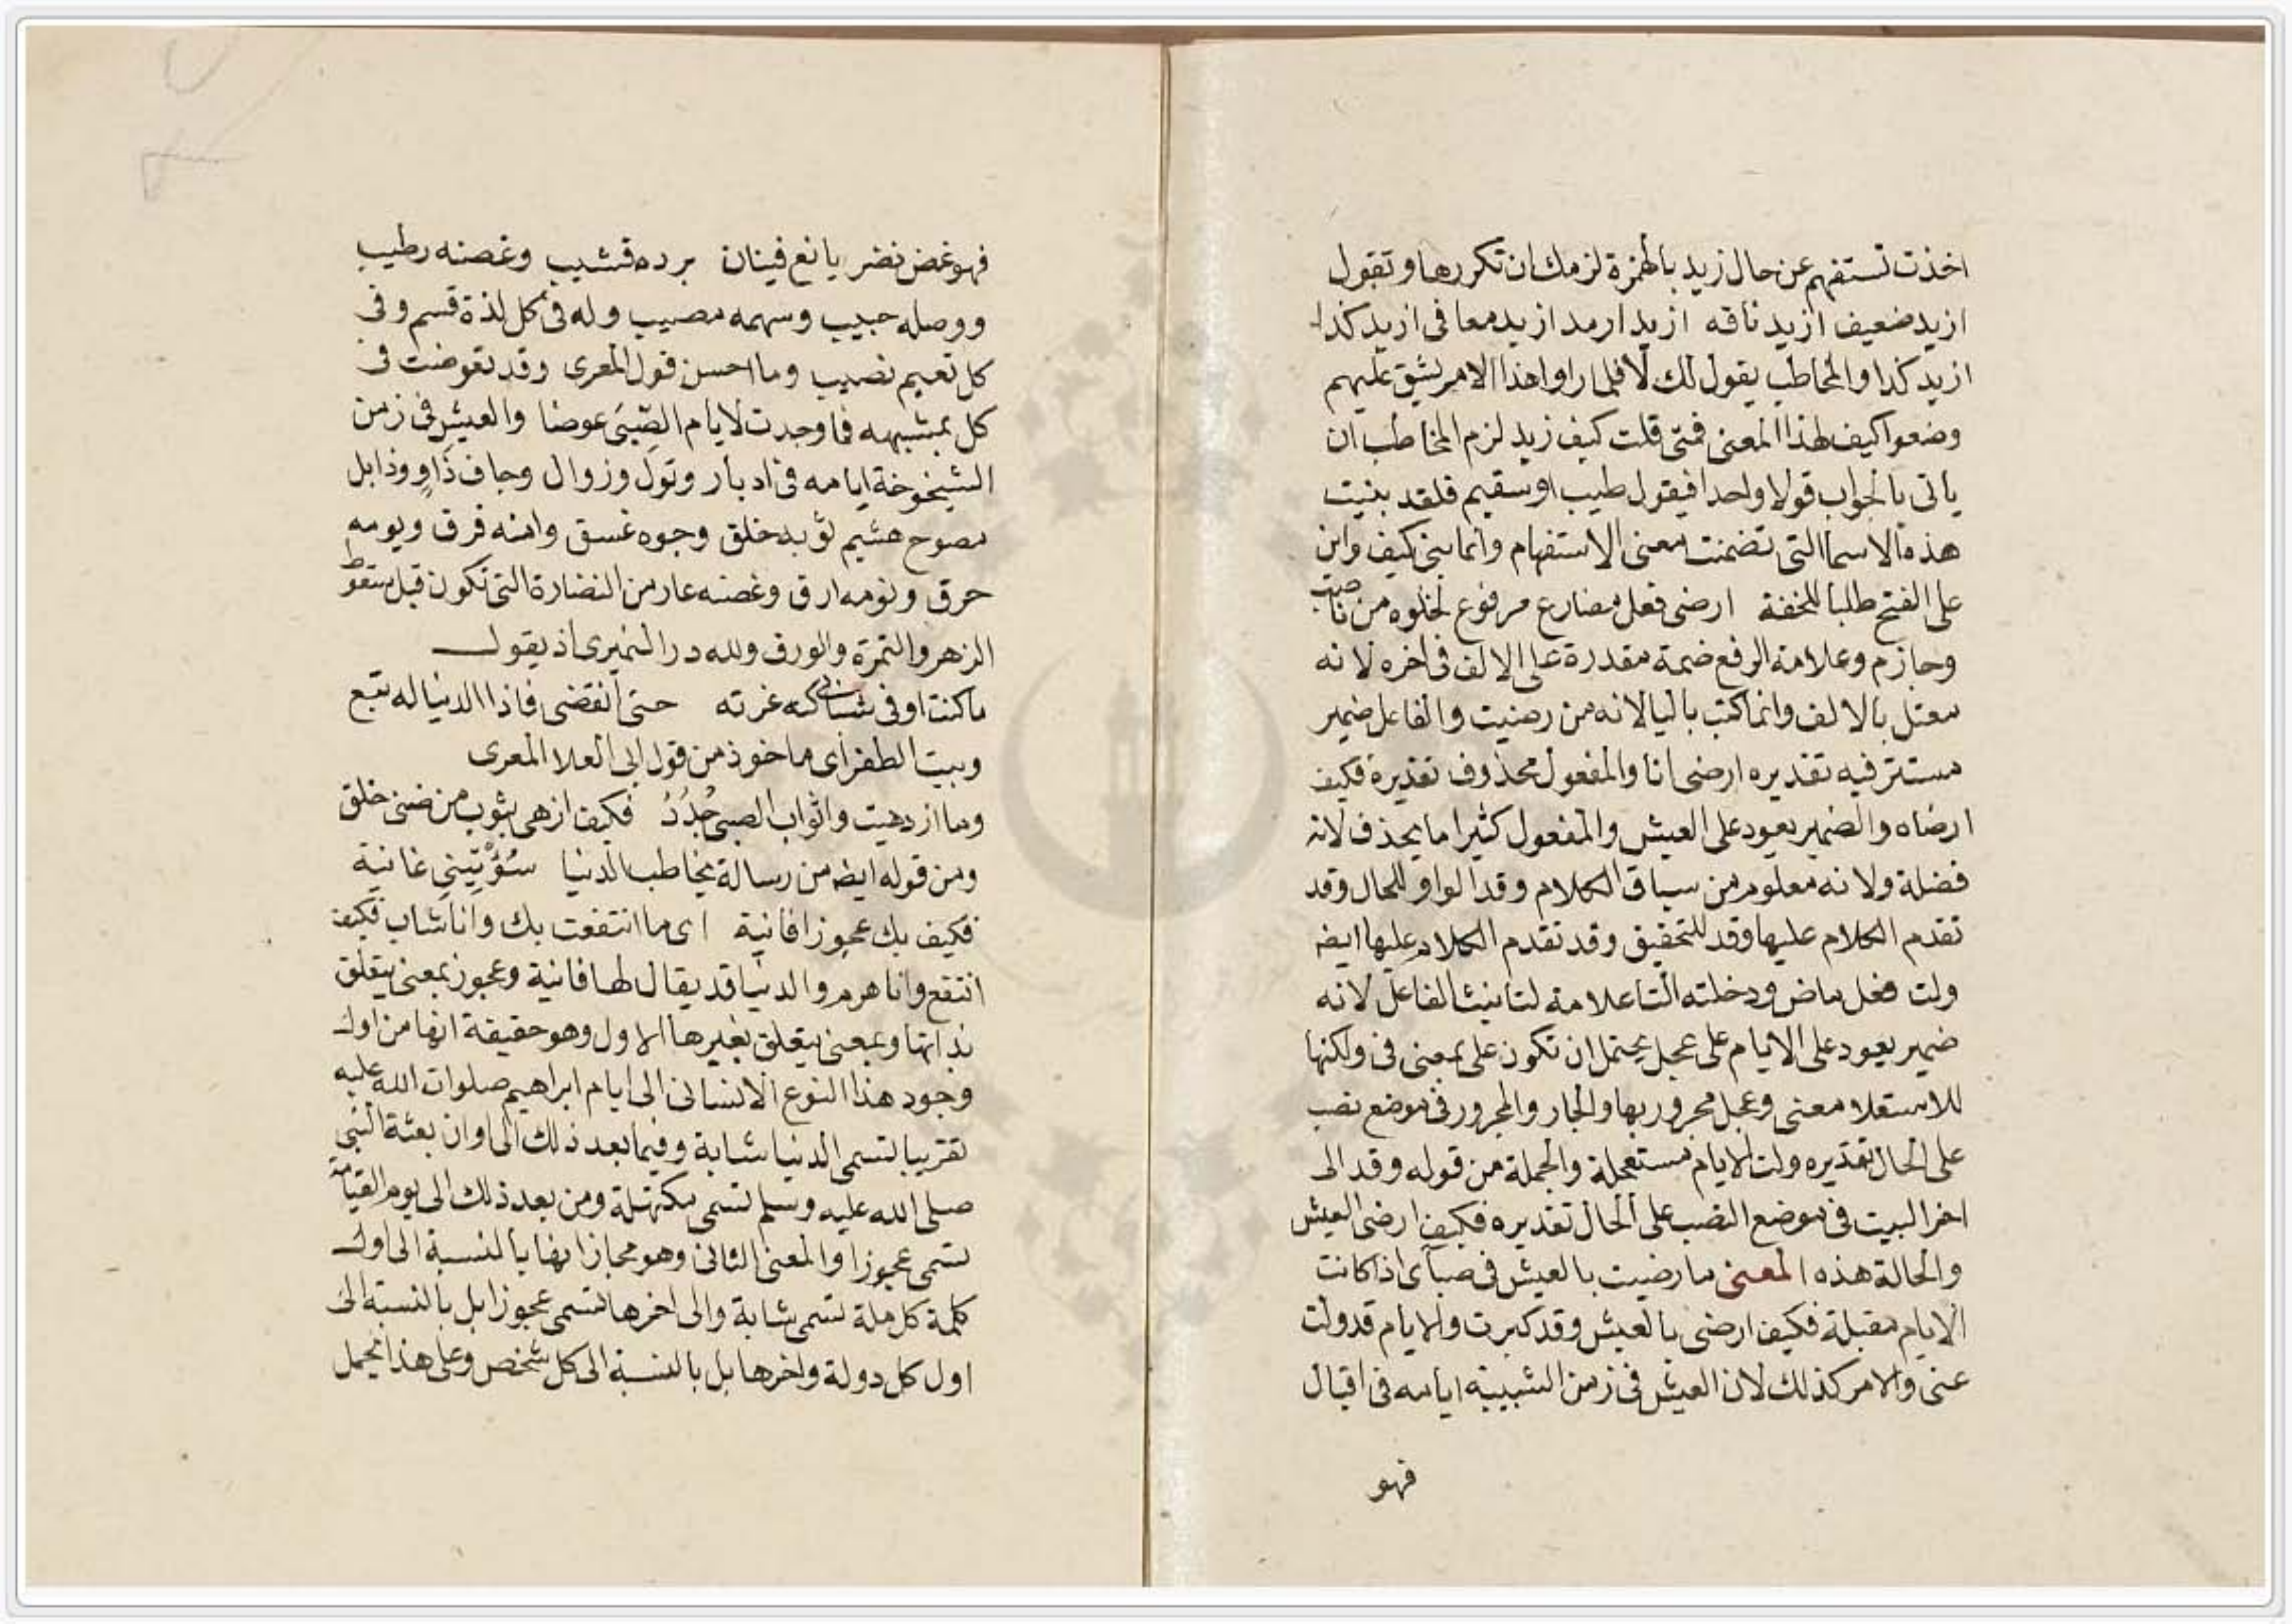 اخذت تستفهم عن حال زيد بالهمزة لزمك ان تكررها وتقول
ازيد ضعيف ازيد ناقه ازيد ارمد ازيد معافى ازيد كذا
ازيد كذا والمخاطب يقول لك لا فلما راوا هذا الامر يشق عليهم
وضعوا كيف لهذا المعنى فمتى قلت كيف زيد لزم المخاطب ان
ياتى بالجواب قولا واحدا فيقول طيب او سقيم فلقد بنيت
هذه الاسما التى تضمنت معنى الاستفهام وانما بنى كيف واين
على الفتح طلبا للخفة ارضى فعل مضارع مرفوع لخلوه من ناصب
وجازم وعلامة الرفع ضمة مقدرة على الالف فى اخره لانه
معتل بالالف وانما كتب باليا لانه من رضيت والفاعل ضمير
مستتر فيه تقديره ارضى انا والمفعول محذوف تقديره فكيف
ارضاه والضمير يعود على العيش والمفعول كثيرا ما يحذف لانه
فضلة ولانه معلوم من سياق الكلام وقد الواو للحال وقد
تقدم الكلام عليها وقد للتحقيق وقد تقدم الكلام عليها ايضه
ولت فعل ماض ودخلته التا علامة لتانيث الفاعل لانه
ضمير يعود على الايام على عجل يحتمل ان تكون على بمعنى فى ولكنها
للاستعلا معنى وعجل مجرور بها والجار والمجرور فى موضع نصب
على الحال تقديره ولت الايام مستعجلة والجملة من قوله وقد الى
اخر البيت فى موضع النصب على الحال تقديره فكيف ارضى العيش
والحالة هذه المعنى ما رضيت بالعيش فى صباى اذ كانت
الايام مقبلة فكيف ارضى بالعيش وقد كبرت والايام قد ولت
عنى والامر كذلك لان العيش فى زمن الشبيبة ايامه فى اقبال
فهو
فهو غض نضر يانع فينان برده قشيب وغصنه رطيب
ووصله حبيب وسهمه مصيب وله فى كل لذة قسم وفى
كل نعيم نصيب وما احسن قول المعرى وقد تعوضت فى
كل بمشبهه فما وجدت لايام الصبى عوضا والعيش فى زمن
الشيخوخة ايامه فى ادبار وتول وزوال وجاف ذاو وذابل
مصوح هشيم ثوبه خلق وجوه غسق وامنه فرق ويومه
حرق ونومه ارق وغصنه عار من النضارة التى تكون قبل سقوط
الزهر والثمرة والورق ولله در النميرى اذ يقول
ما كنت اوفى شبابى كنه غرته حتى انقضى فاذا الدنيا له تبع
وبيت الطغراى ماخوذ من قول ابى العلا المعرى
وما ازدهيت واثواب الصبى جدد فكيف ازهى بثوب من ضنى خلق
ومن قوله ايضه من رسالة يخاطب الدنيا سؤتيني غانية
فكيف بك عجوزا فانية اى ما انتفعت بك وانا شاب فكيف
انتفع وانا هرم والدنيا قد يقال لها فانية وعجوز بمعنى يتعلق
بذاتها وبمعنى يتعلق بغيرها الاول وهو حقيقة انها من اول
وجود هذا النوع الانسانى الى ايام ابراهيم صلوات الله عليه
تقريبا تسمى الدنيا شابة وفيما بعد ذلك الى اوان بعثة النبى
صلى الله عليه وسلم تسمى مكتهلة ومن بعد ذلك الى يوم القيامة
تسمى عجوزا والمعنى الثانى وهو مجاز انها بالنسبة الى اول
كلمة كل ملة تسمى شابة والى اخرها تسمى عجوزا بل بالنسبة الى
اول كل دولة واخرها بل بالنسبة الى كل شخص وعلى هذا يحمل